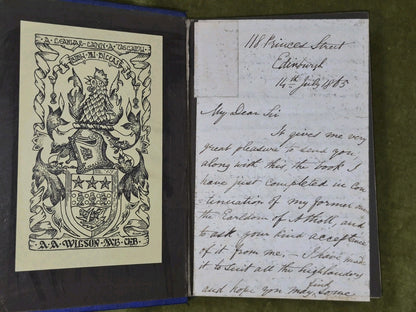 A. A. WILSON MB. ChB.
118 Princes Street
Edinburgh
14th July 1865
My Dear Sir
It gives me very
great pleasure to send you,
along with this, the book I
have just completed in Con-
tinuation of my former on
the Earldom of Atholl, and
to ask your kind acceptance
of it from me, – I have
it to suit all the highlanders
and hope you may find some